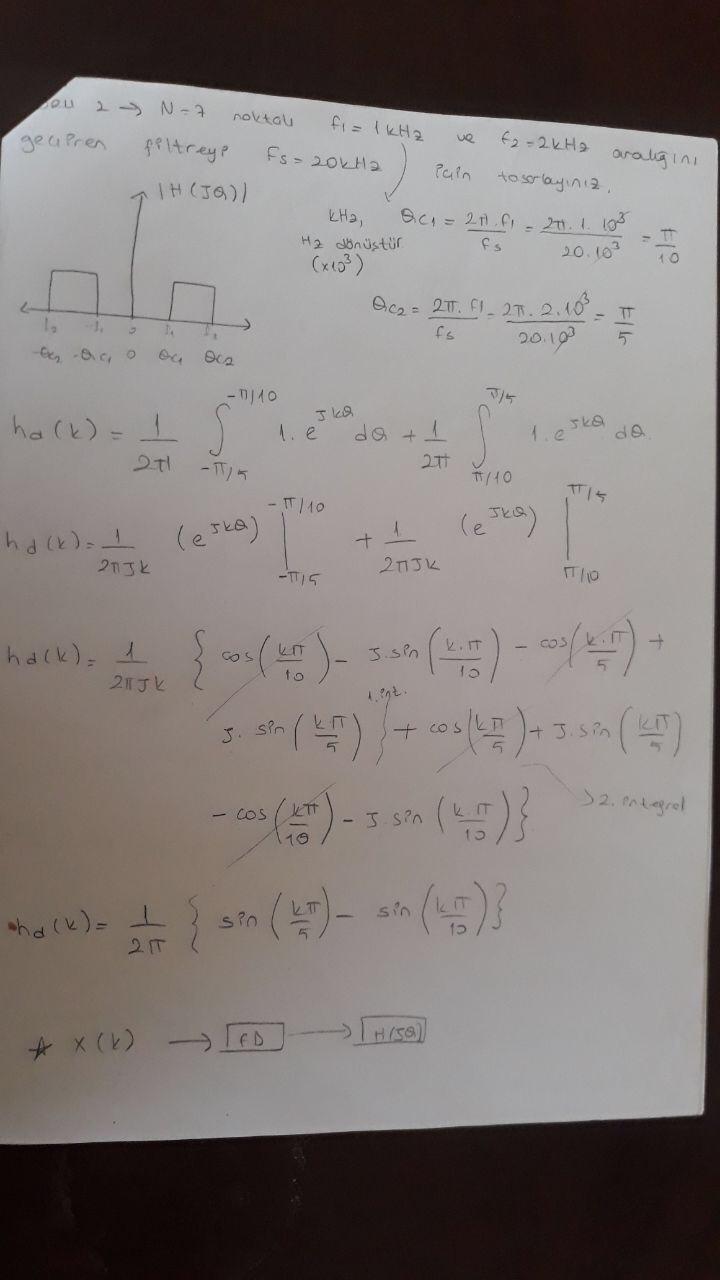 2 → N=7 noktalı f1=1kHz ve f2=2kHz aralığını
geçiren filtreyi Fs=20kHz için tasarlayınız.
|H(JΘ)|
kHz,
Hz dönüştür
(x10³)
Θc1 = 2π.f1/fs = 2π.1.10³/20.10³ = π/10
Θc2 = 2π.f1/fs = 2π.2.10³/20.10³ = π/5
-f2 -f1 0 f1 f2
-Θc2 -Θc1 0 Θc1 Θc2
hd(k) = 1/2π ∫_{-π/5}^{-π/10} 1.e^{JkΘ} dΘ + 1/2π ∫_{π/10}^{π/5} 1.e^{JkΘ} dΘ.
hd(k) = 1/2πJk (e^{JkΘ}) |_{-π/5}^{-π/10} + 1/2πJk (e^{JkΘ}) |_{π/10}^{π/5}
hd(k) = 1/2πJk { cos(kπ/10) - J.sin(k.π/10) - cos(k.π/5) +
1.int.
J. sin(kπ/5) } + cos(kπ/5) + J.sin(kπ/5)
- cos(kπ/10) - J.sin(k.π/10) }
→ 2. integral
hd(k) = 1/2π { sin(kπ/5) - sin(kπ/10) }
☆ x(k) → FD → H(JΘ)